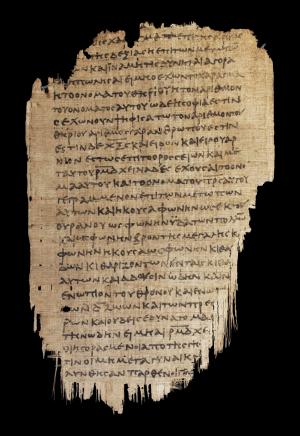 ΧΑΡΑΓΜΑ ΕΠΙ ΤΗϹ
ΤΗϹ ΔΕΞΙΑϹ Η ΕΠΙ ΤΩΝ ΜΕΤΩΠΩ
ΚΑΙ ΙΝΑ ΜΗ ΤΙϹ ΔΥΝΗΤΑΙ ΑΓΟΡΑ
ΕΙ ΜΗ Ο ΕΧΩΝ ΤΟ ΧΑΡΑΓΜΑ
Η ΤΟ ΟΝΟΜΑ ΤΟΥ ΘΗΡΙΟΥ Η ΤΟΝ ΑΡΙΘΜΟΝ
ΤΟΥ ΟΝΟΜΑΤΟϹ ΑΥΤΟΥ ΩΔΕ Η ϹΟΦΙΑ ΕϹΤΙΝ
Ο ΕΧΩΝ ΟΥΝ ΨΗΦΙϹΑΤΩ ΤΟΝ ΑΡΙΘΜΟΝ ΤΟΥ
ΘΗΡΙΟΥ ΑΡΙΘΜΟϹ ΓΑΡ ΑΝΘΡΩΠΟΥ ΕϹΤΙΝ
ΕϹΤΙΝ ΔΕ ΧΞϚ ΚΑΙ ΕΙΔΟΝ ΚΑΙ ΕΙΔΟΥ ΑΡ
ΝΙΟΝ ΕϹΤΩϹ ΕΠΙ ΤΟ ΟΡΟϹ ϹΕΙΩΝ ΚΑΙ ΜΕ
Τ ΑΥΤΟΥ ΡΜΔ ΧΕΙΛΙΑΔΕϹ ΕΧΟΥϹΑΙ ΤΟ ΟΝΟ
ΜΑ ΑΥΤΟΥ ΚΑΙ ΤΟ ΟΝΟΜΑ ΤΟΥ ΠΡϹ ΑΥΤΟΥ
ΓΕΓΡΑΜΜΕΝΟΝ ΕΠΙ ΤΩΝ ΜΕΤΩΠΩΝ
ΑΥΤΩΝ ΚΑΙ ΗΚΟΥϹΑ ΦΩΝΗΝ ΩϹ ΕΚ ΤΟΥ
ΟΥΡΑΝΟΥ ΩϹ ΦΩΝΗΝ ΥΔΑΤΩΝ ΠΟΛΛΩ
ΚΑΙ ΩϹ ΦΩΝΗΝ ΒΡΟΝΤΗϹ ΜΕΓΑΛΗϹ Κ
ΦΩΝΗΝ ΗΚΟΥϹΑ ΩϹ ΦΩΝΗΝ ΚΙΘΑ
ΔΩΝ ΚΙΘΑΡΙΖΟΝΤΩΝ ΕΝ ΤΑΙϹ ΚΙΘΑ
ΑΥΤΩΝ ΚΑΙ ΑΔΟΥϹΙΝ ΩΔΗΝ ΚΑΙΝ
ΕΝΩΠΙΟΝ ΤΟΥ ΘΡΟΝΟΥ ΚΑΙ ΕΝΩ
ΤΩΝ Δ ΖΩΩΝ ΚΑΙ ΤΩΝ ΠΡΕϹ
ΡΩΝ ΚΑΙ ΟΥΔΕΙϹ ΕΔΥΝΑΤΟ ΜΑ
ΤΗΝ ΩΔΗΝ ΕΙ ΜΗ ΑΙ ΡΜΔ ΧΕ
ΟΙ ΗΓΟΡΑϹΜΕΝΟΙ ΑΠΟ ΤΗϹ ΓΗ
ΤΙΝ ΟΙ ΜΗ ΜΕΤΑ ΓΥΝΑΙΚ
ΛΥΝΘΗϹΑΝ ΠΑΡΘΕΝΟΙ Γ